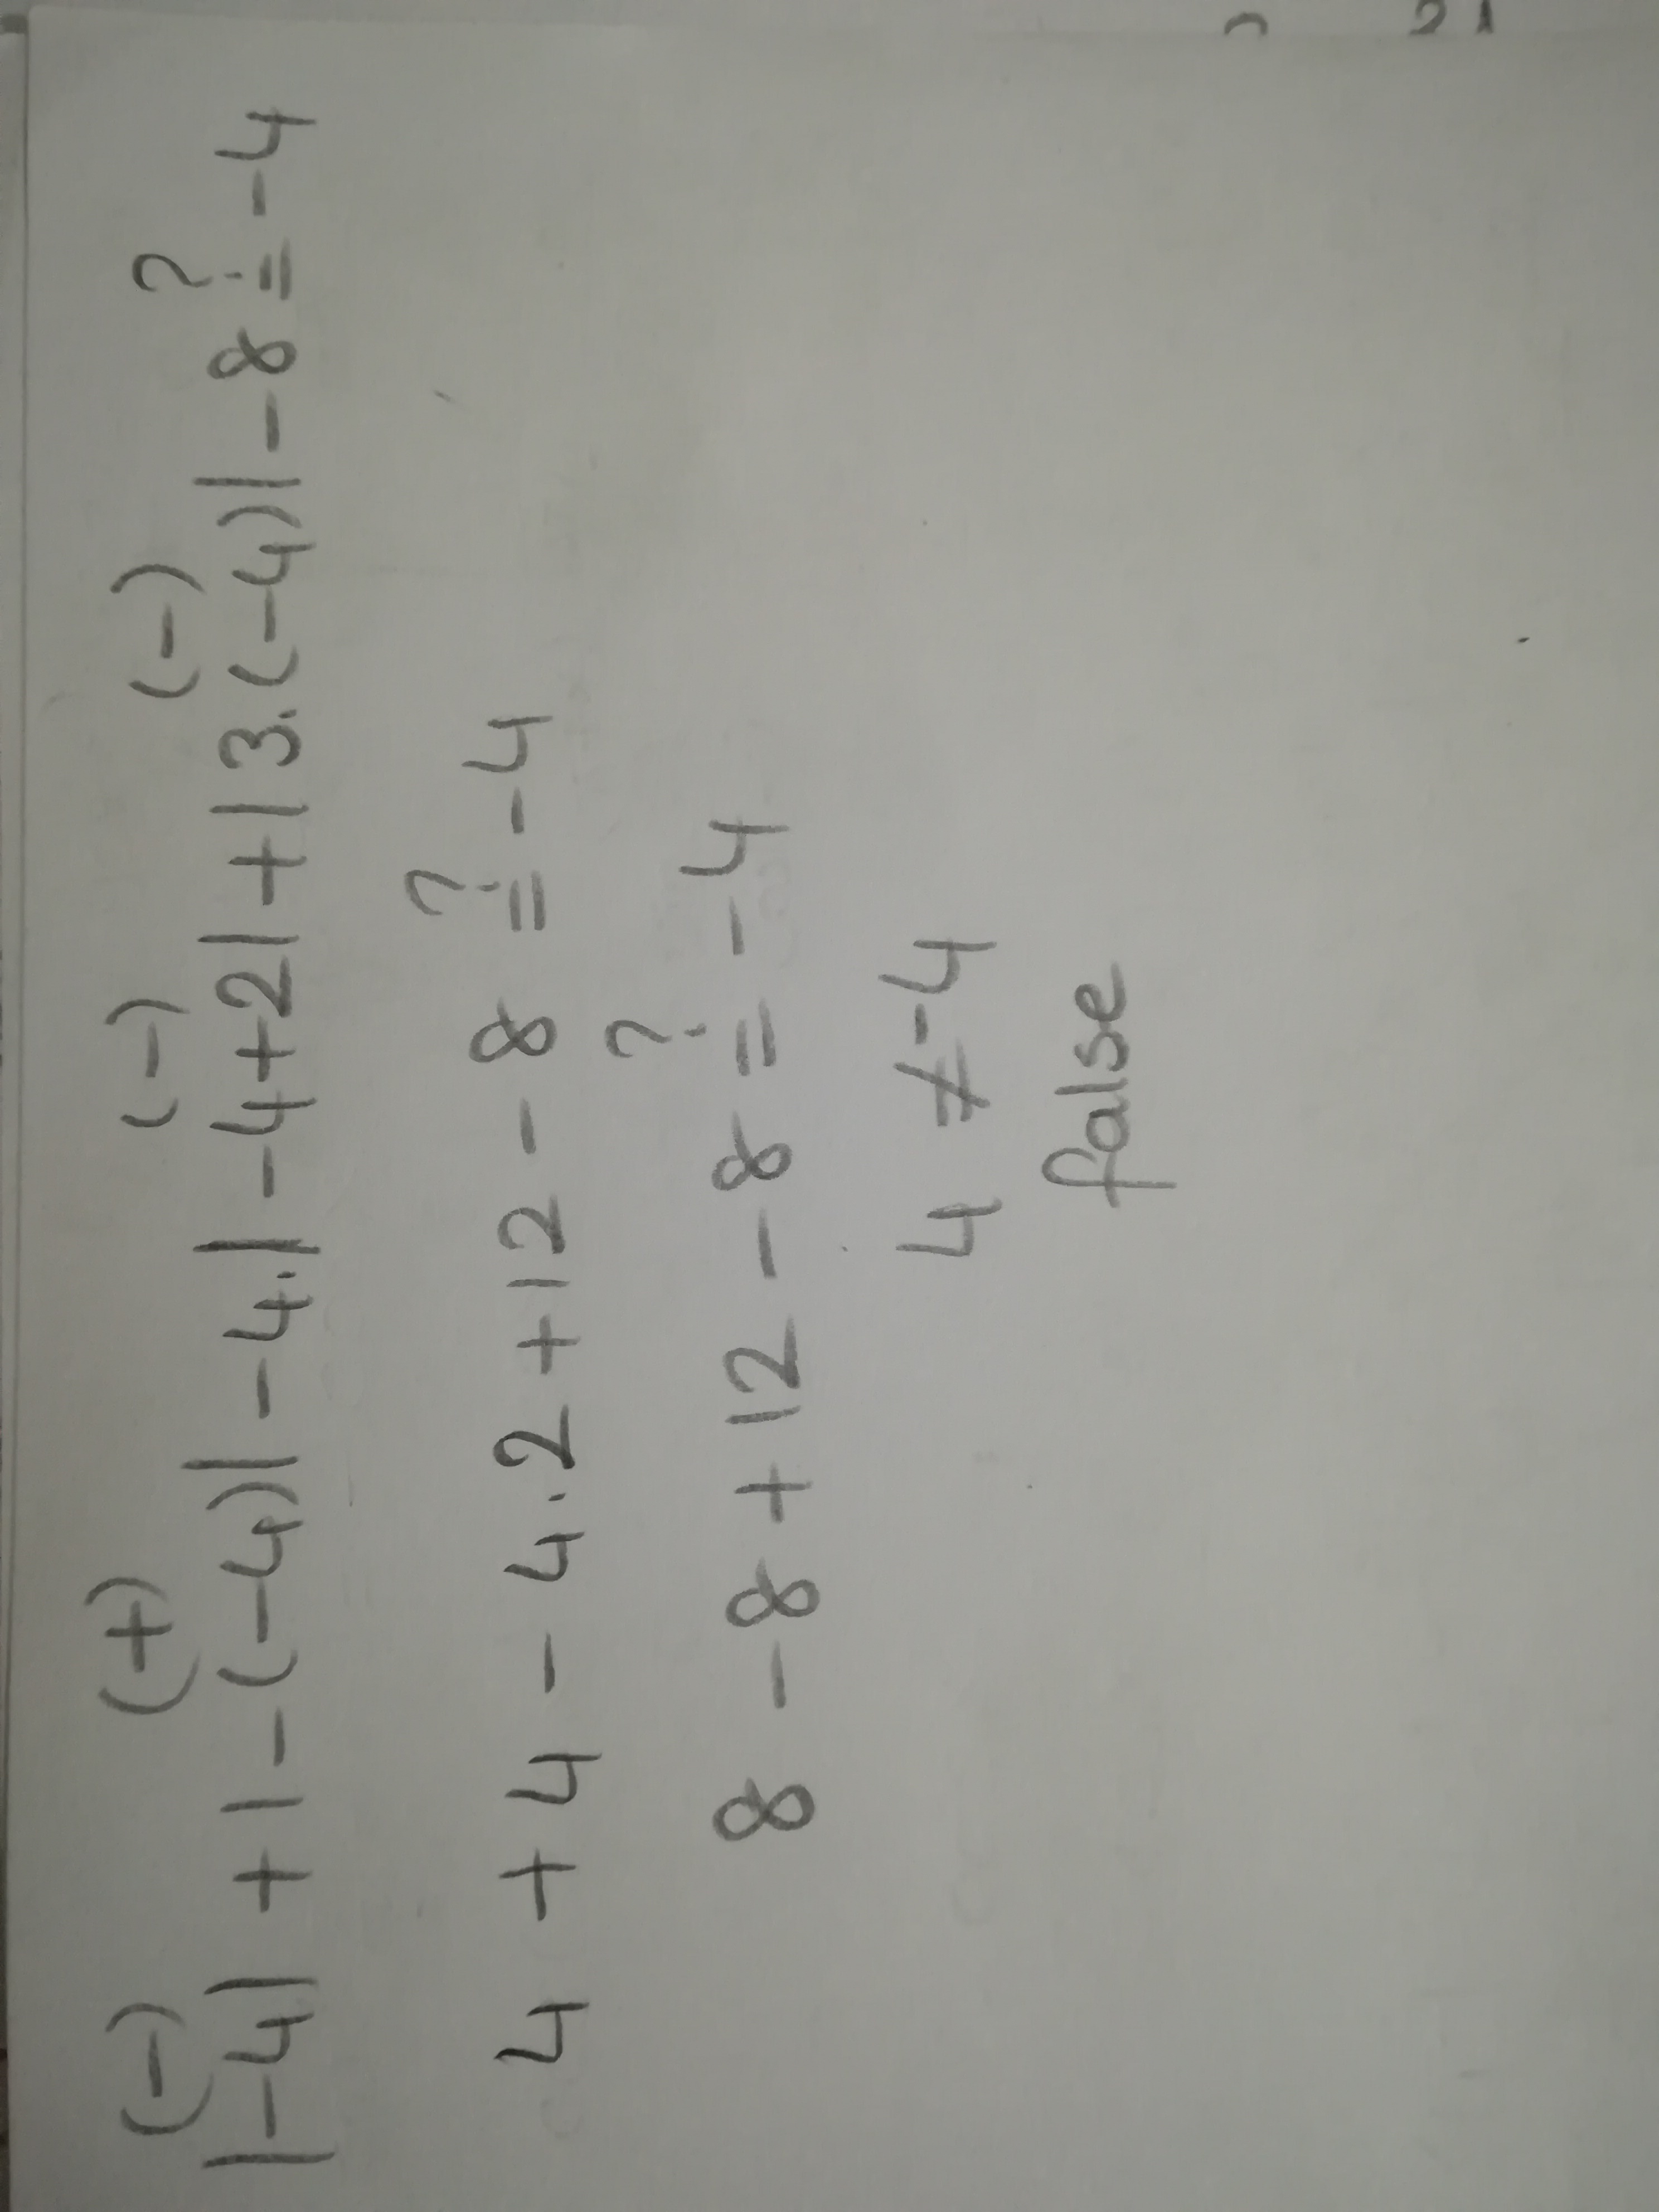 (-) (+) (-) (-) ?
|-4| + |-(-4)| - 4.|-4+2| + |3.(-4)| - 8 = -4
?
4 + 4 - 4.2 + 12 - 8 = -4
?
8 - 8 + 12 - 8 = -4
4 ≠ -4
false